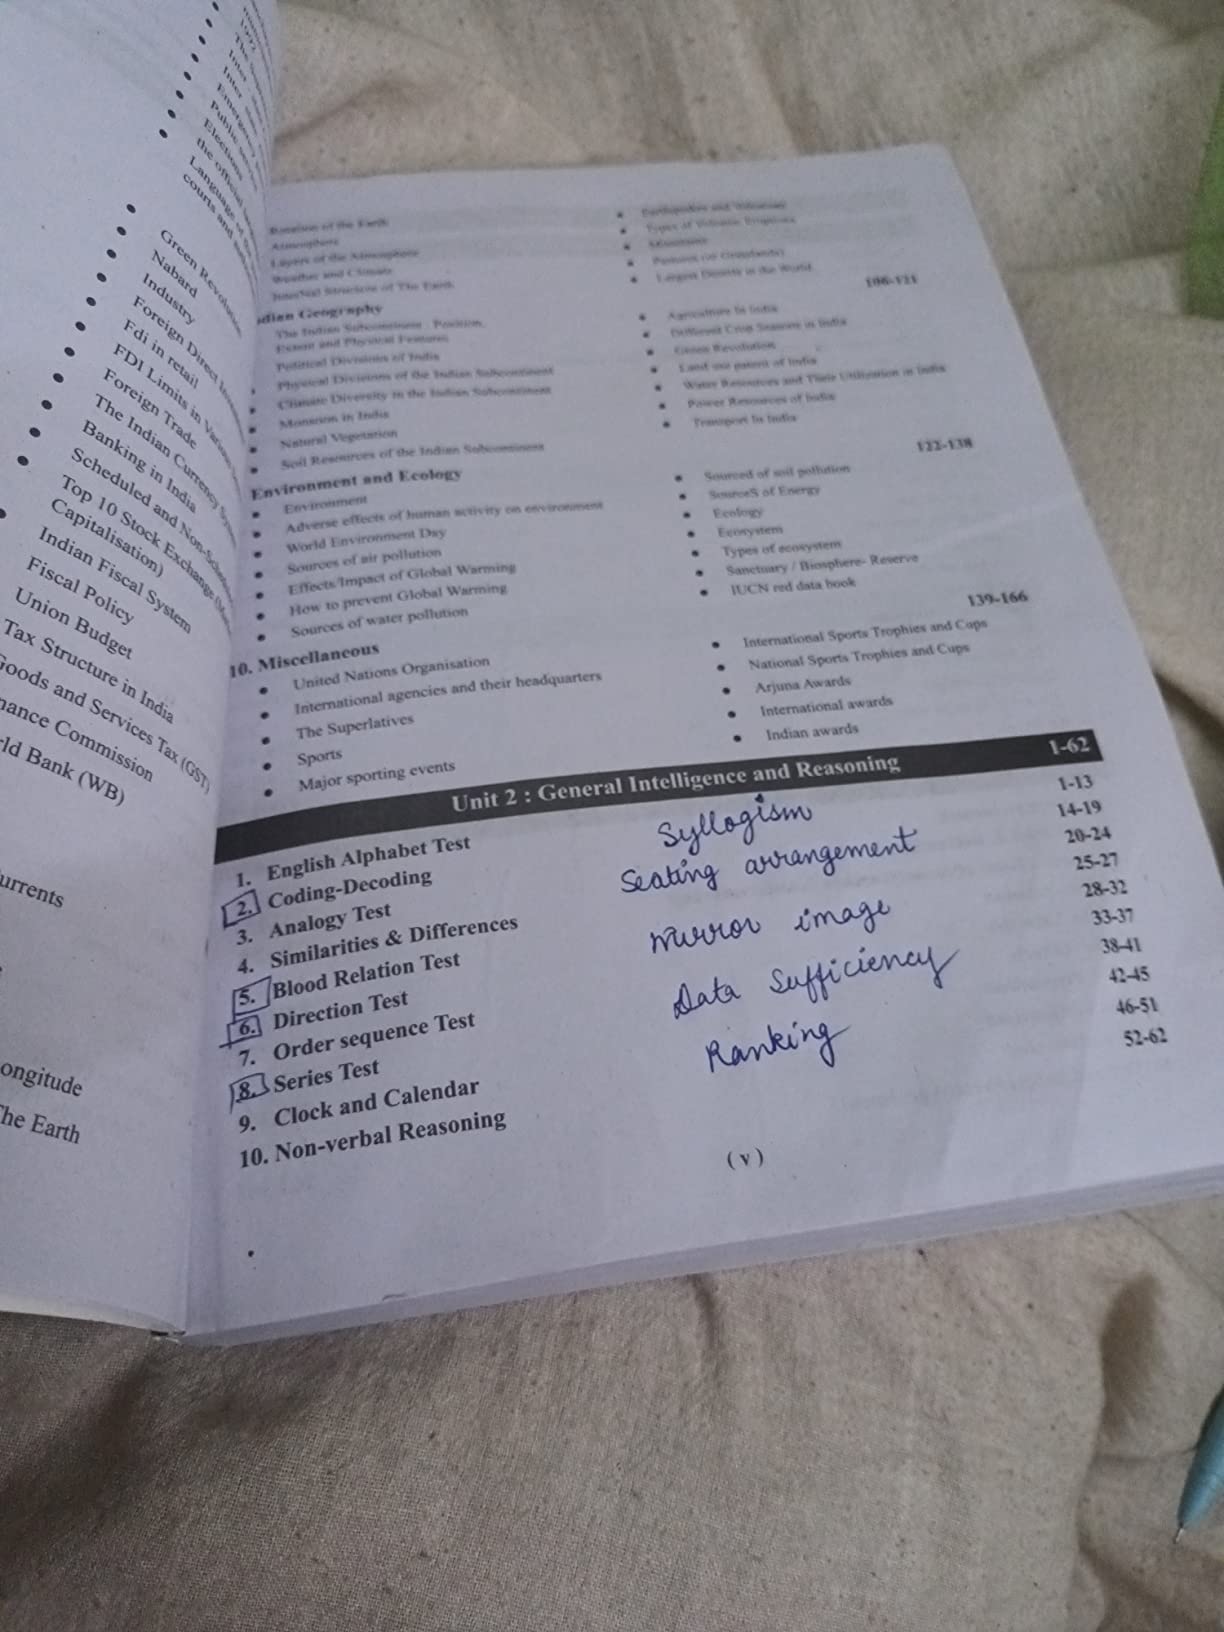 Green Revolution
Nabard
Industry
Foreign Direct
Fdi in retail
FDI Limits in Various
Foreign Trade
The Indian Currency
Banking in India
Scheduled and
Top 10 Stock Exchange
Capitalisation)
Indian Fiscal System
Fiscal Policy
Union Budget
Tax Structure in India
Goods and Services Tax (GST)
Commission
Bank (WB)
urrents
ongitude
The Earth
Rotation of the Earth
Atmosphere
Layers of the Atmosphere
Weather and Climate
Structure of The Earth
Largest Deserts in the World
106-121
dian Geography
The Indian Subcontinent : Position,
Extent and Physical Features
Political Divisions of India
Physical Divisions of the Indian Subcontinent
Climate Diversity in the Indian Subcontinent
Monsoon in India
Natural Vegetation
Soil Resources of the Indian Subcontinent
Agriculture In India
Different Crop Seasons in India
Green Revolution
Land use patent of India
Water Resources and Their Utilization in India
Power Resources of India
Transport In India
122-138
Environment and Ecology
Environment
Adverse effects of human activity on environment
World Environment Day
Sources of air pollution
Effects/Impact of Global Warming
How to prevent Global Warming
Sources of water pollution
Sourced of soil pollution
SourceS of Energy
Ecology
Ecosystem
Types of ecosystem
Sanctuary / Biosphere- Reserve
IUCN red data book
139-166
10. Miscellaneous
United Nations Organisation
International agencies and their headquarters
The Superlatives
Sports
Major sporting events
International Sports Trophies and Cups
National Sports Trophies and Cups
Arjuna Awards
International awards
Indian awards
Unit 2 : General Intelligence and Reasoning 1-62
1. English Alphabet Test 1-13
2. Coding-Decoding 14-19
3. Analogy Test 20-24
4. Similarities & Differences 25-27
5. Blood Relation Test 28-32
6. Direction Test 33-37
7. Order sequence Test 38-41
8. Series Test 42-45
9. Clock and Calendar 46-51
10. Non-verbal Reasoning 52-62
Syllogism
Seating arrangement
Mirror image
Data Sufficiency
Ranking
(v)